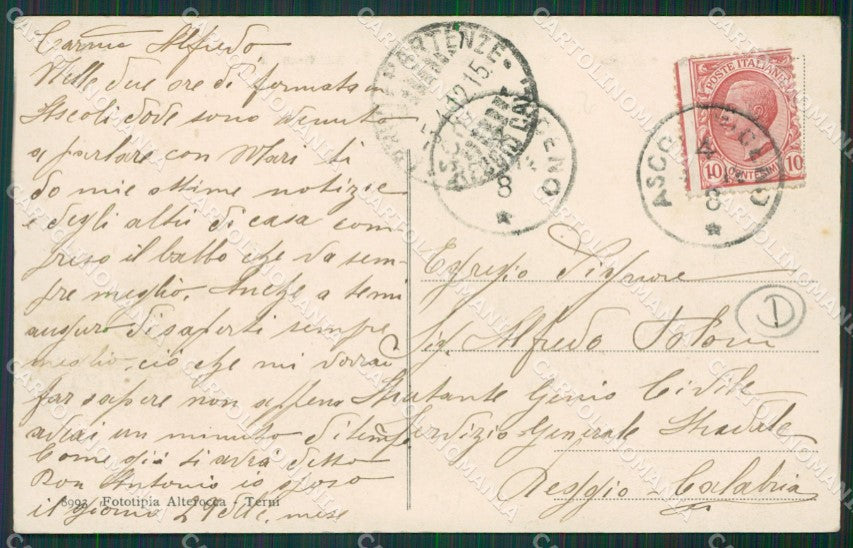 Carmo Alfredo
Nelle due ore di fermata in
Ascoli dove sono venuto
a parlare con Mari ti
do mie ottime notizie
e degli altri di casa com
preso il babbo che va sem
pre meglio. Anche a te mi
auguro di saperti sempre
meglio, ciò che mi dovrai
far sapere non appena
avrai un minuto di tempo
Come già ti avrà detto
Don Antonio io sposo
il giorno 2 del mese
8993 Fototipia Alterocca - Terni
PARTENZE
12.15
REGGIO CAL
CENO
8
POSTE ITALIANE
10 CENTESIMI 10
ASCO CENO
4
8
D
Egregio Signore
Sig. Alfredo
Aiutante Genio Civile
Servizio Generale Stradale
Reggio - Calabria
CARTOLINOMANIA